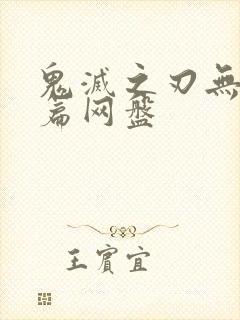 鬼滅之刃無
篇网盤
王賓宜